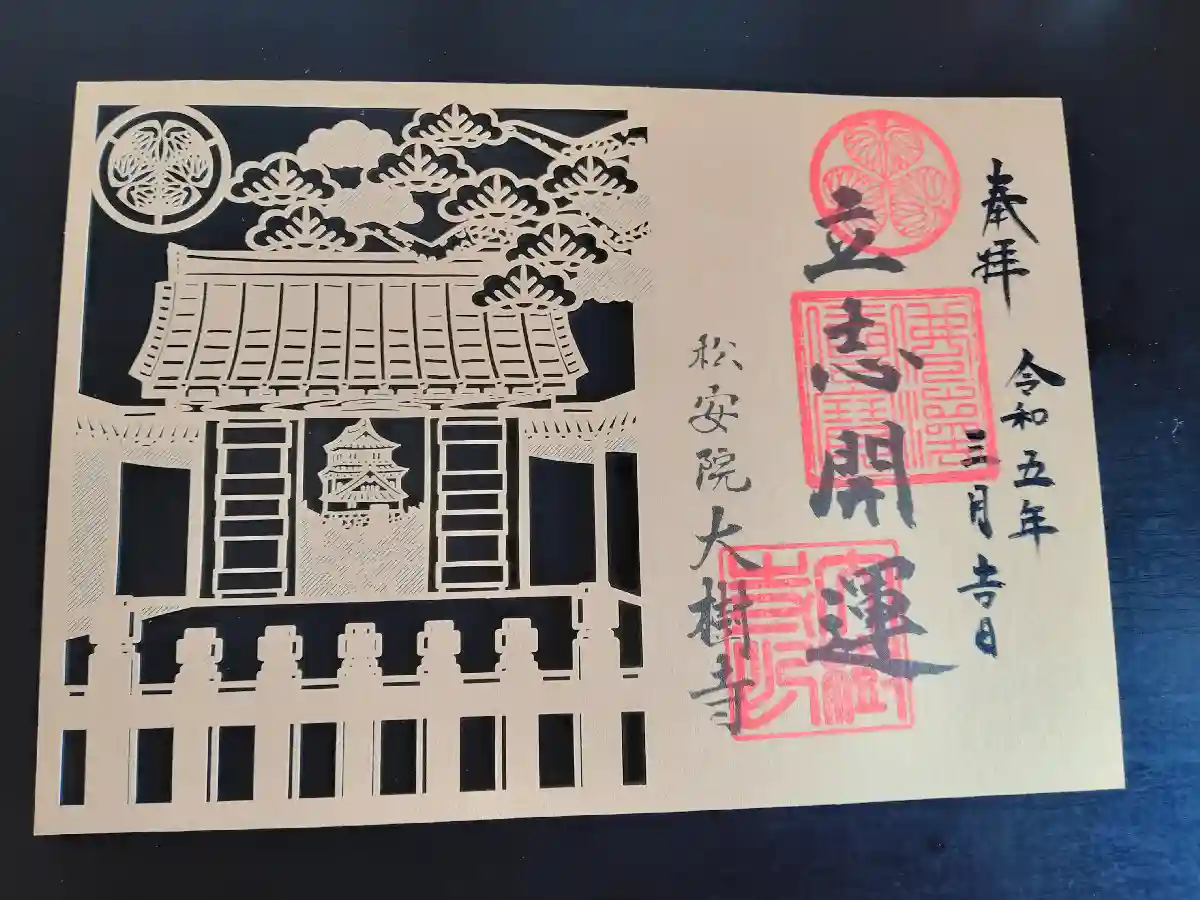 奉拝
令和五年
三月吉日
立志開運
松安院大樹寺